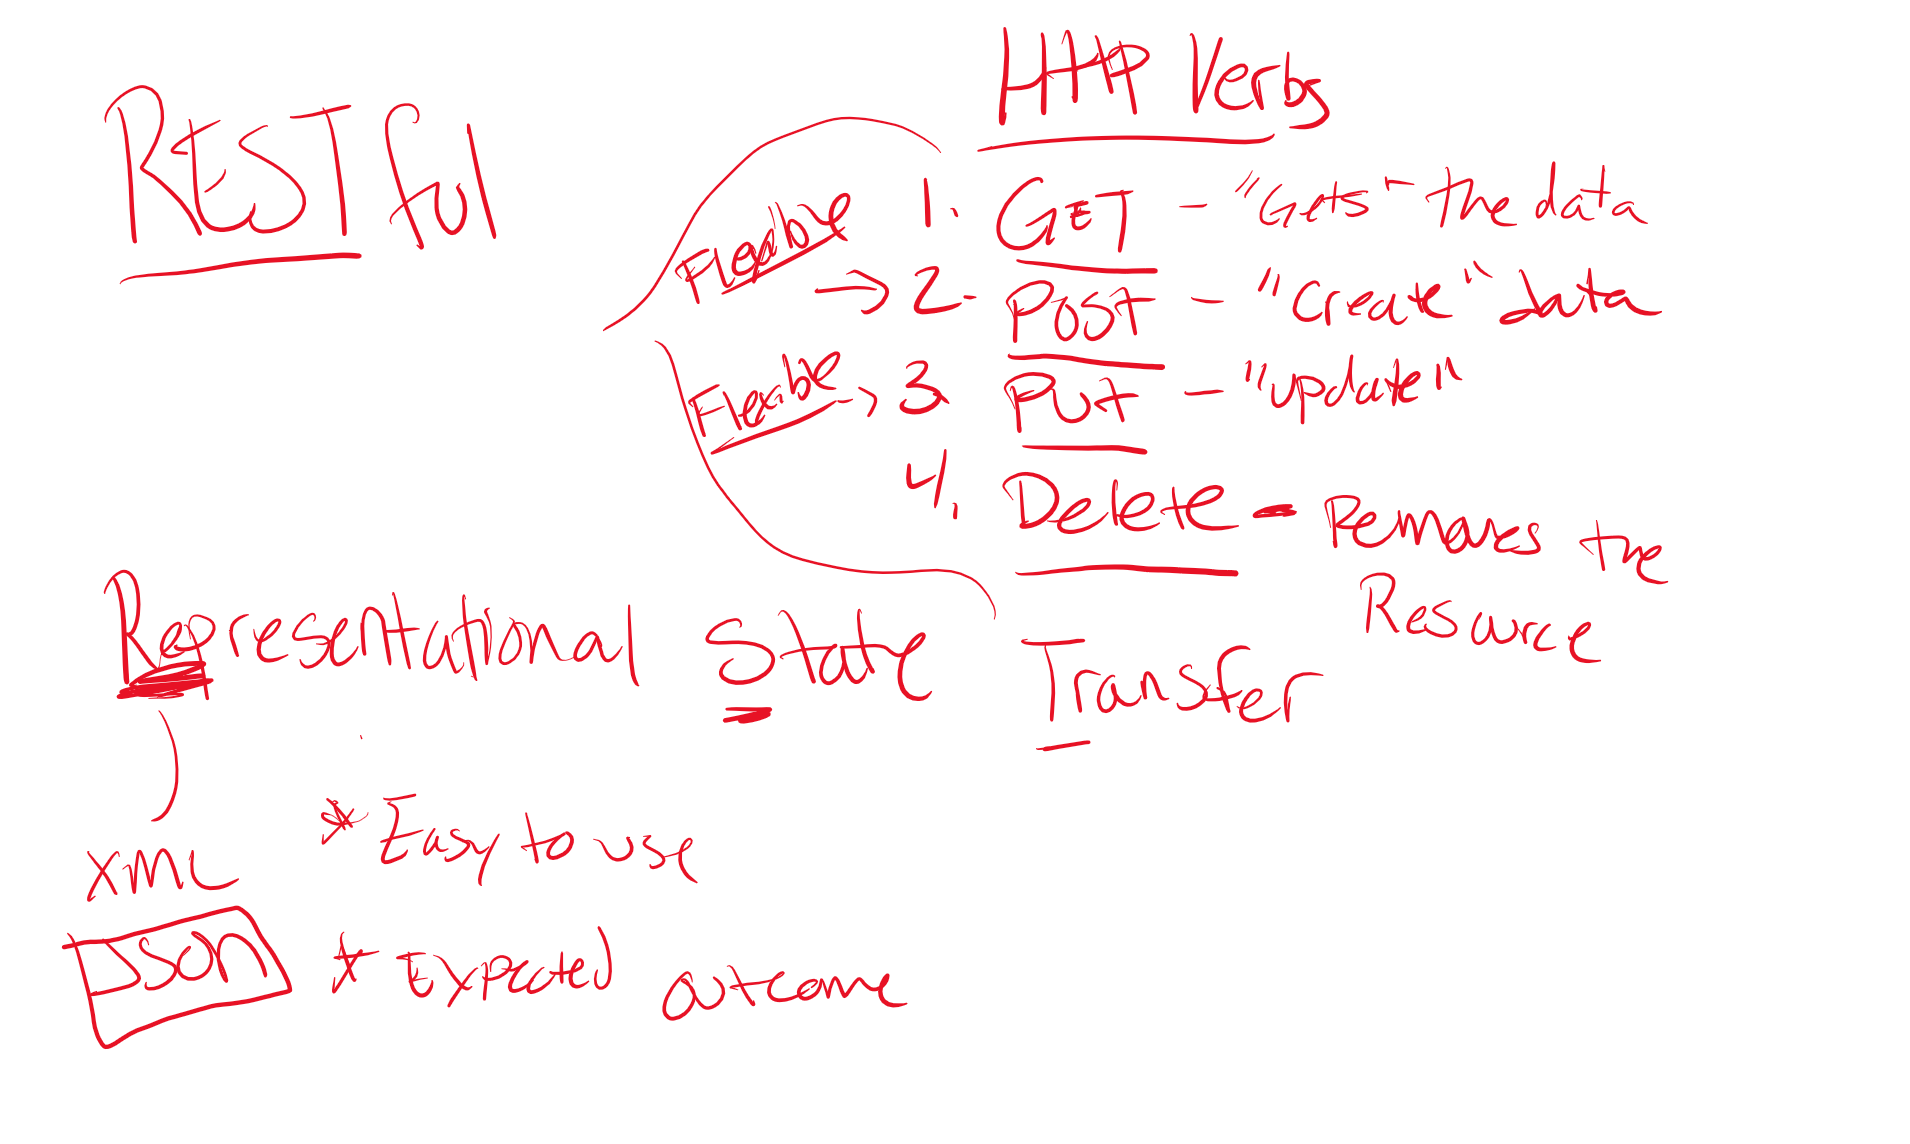 RESTful
HTTP Verbs
1. GET - "Gets" the data
Flexible -> 2. POST - "Create" data
Flexible -> 3 PUT - "update"
4. Delete - Removes the
Resource
Representational State Transfer
XML
JSON
* Easy to use
* Expected outcome